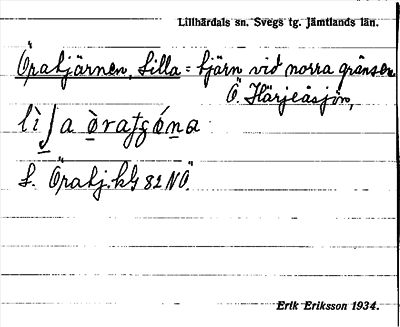 Lillhärdals sn. Svegs tg. Jämtlands län.
Öratjärnen, Lilla = tjärn vid norra gränsen
Ö. Härjeåsjön,
L. Öratj. kbl 82 NÖ.
Erik Eriksson 1934.